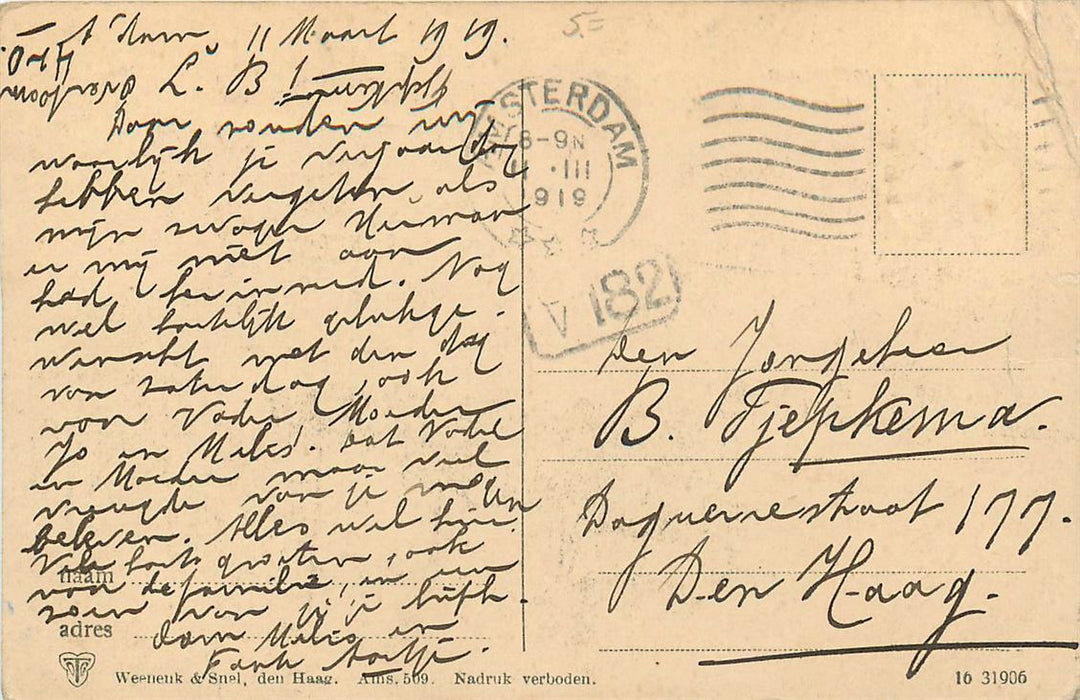 A'dam, 11 Maart 1919.
L. B!
Daar zouden wij
waarlijk je verjaardag
hebben vergeten als
mijn zwager Herman
er mij niet aan
had herinnerd. Nog
wel hartelijk gelukge-
wenscht met den dag
van zaterdag, ook
voor Vader, Moeder
Jo en Melis! Dat Vader
en Moeder maar veel
vreugde van je mogen
beleven. Alles wel hier.
Vele hart. groeten, ook
van de familie, en een
zoen van je je liefh.
oom Melis en
Tante Aartje.
naam
adres
AMSTERDAM
8-9N
11 .III
1919
V 182
5.=
Den Jongeheer
B. Tjepkema.
Daguerrestraat 177.
Den Haag.
Weenenk & Snel, den Haag. Ams. 509. Nadruk verboden.
16 31906